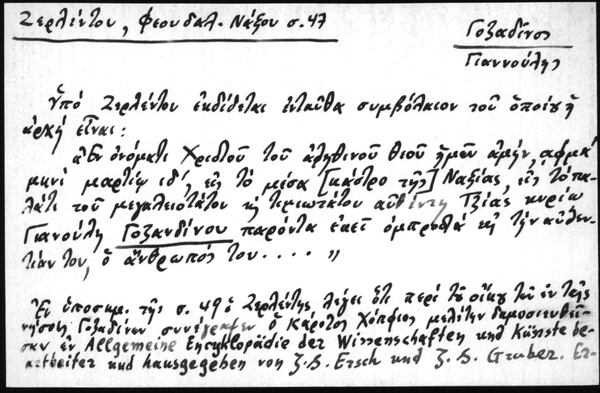 Ζερλέντου, Φεουδαλ. Νάξου σ. 47
Γοζαδίνος
Γιαννούλης
Ὑπό Ζερλέντου ἐκδίδεται ἐνταῦθα συμβόλαιον τοῦ ὁποίου ἡ
ἀρχή εἶναι:
"Ἐν ὀνόματι Χριστοῦ τοῦ ἀληθινοῦ Θεοῦ ἡμῶν ἀμήν, αφμα'
μηνί μαρτίῳ ιδ', εἰς τό μέσα [κάστρο τῆς] Ναξίας, εἰς τό πα-
λάτι τοῦ μεγαλειοτάτου κὴ τιμιωτάτου αὐθέντη Τζίας κυρίω
Γιανούλη Γοζανδίνου παρόντα ἐκεῖ ὀμπροστά κὴ τήν αὐθεν-
τίαν του, ὁ ἄνθρωπός του .... "
Ἐν ὑποσημ. τῆς σ. 49 ὁ Ζερλέντης λέγει ὅτι περί τοῦ οἴκου τῶν ἐν ταῖς
νήσοις Γοζαδίνων συνέγραψεν ὁ Κάρολος Χόπφιος μελέτην δημοσιευθεῖ-
σαν ἐν Allgemeine Encyklopädie der Wissenschaften und Künste be-
arbeitet und hausgegeben von J. S. Ersch und J. G. Gruber. Er-